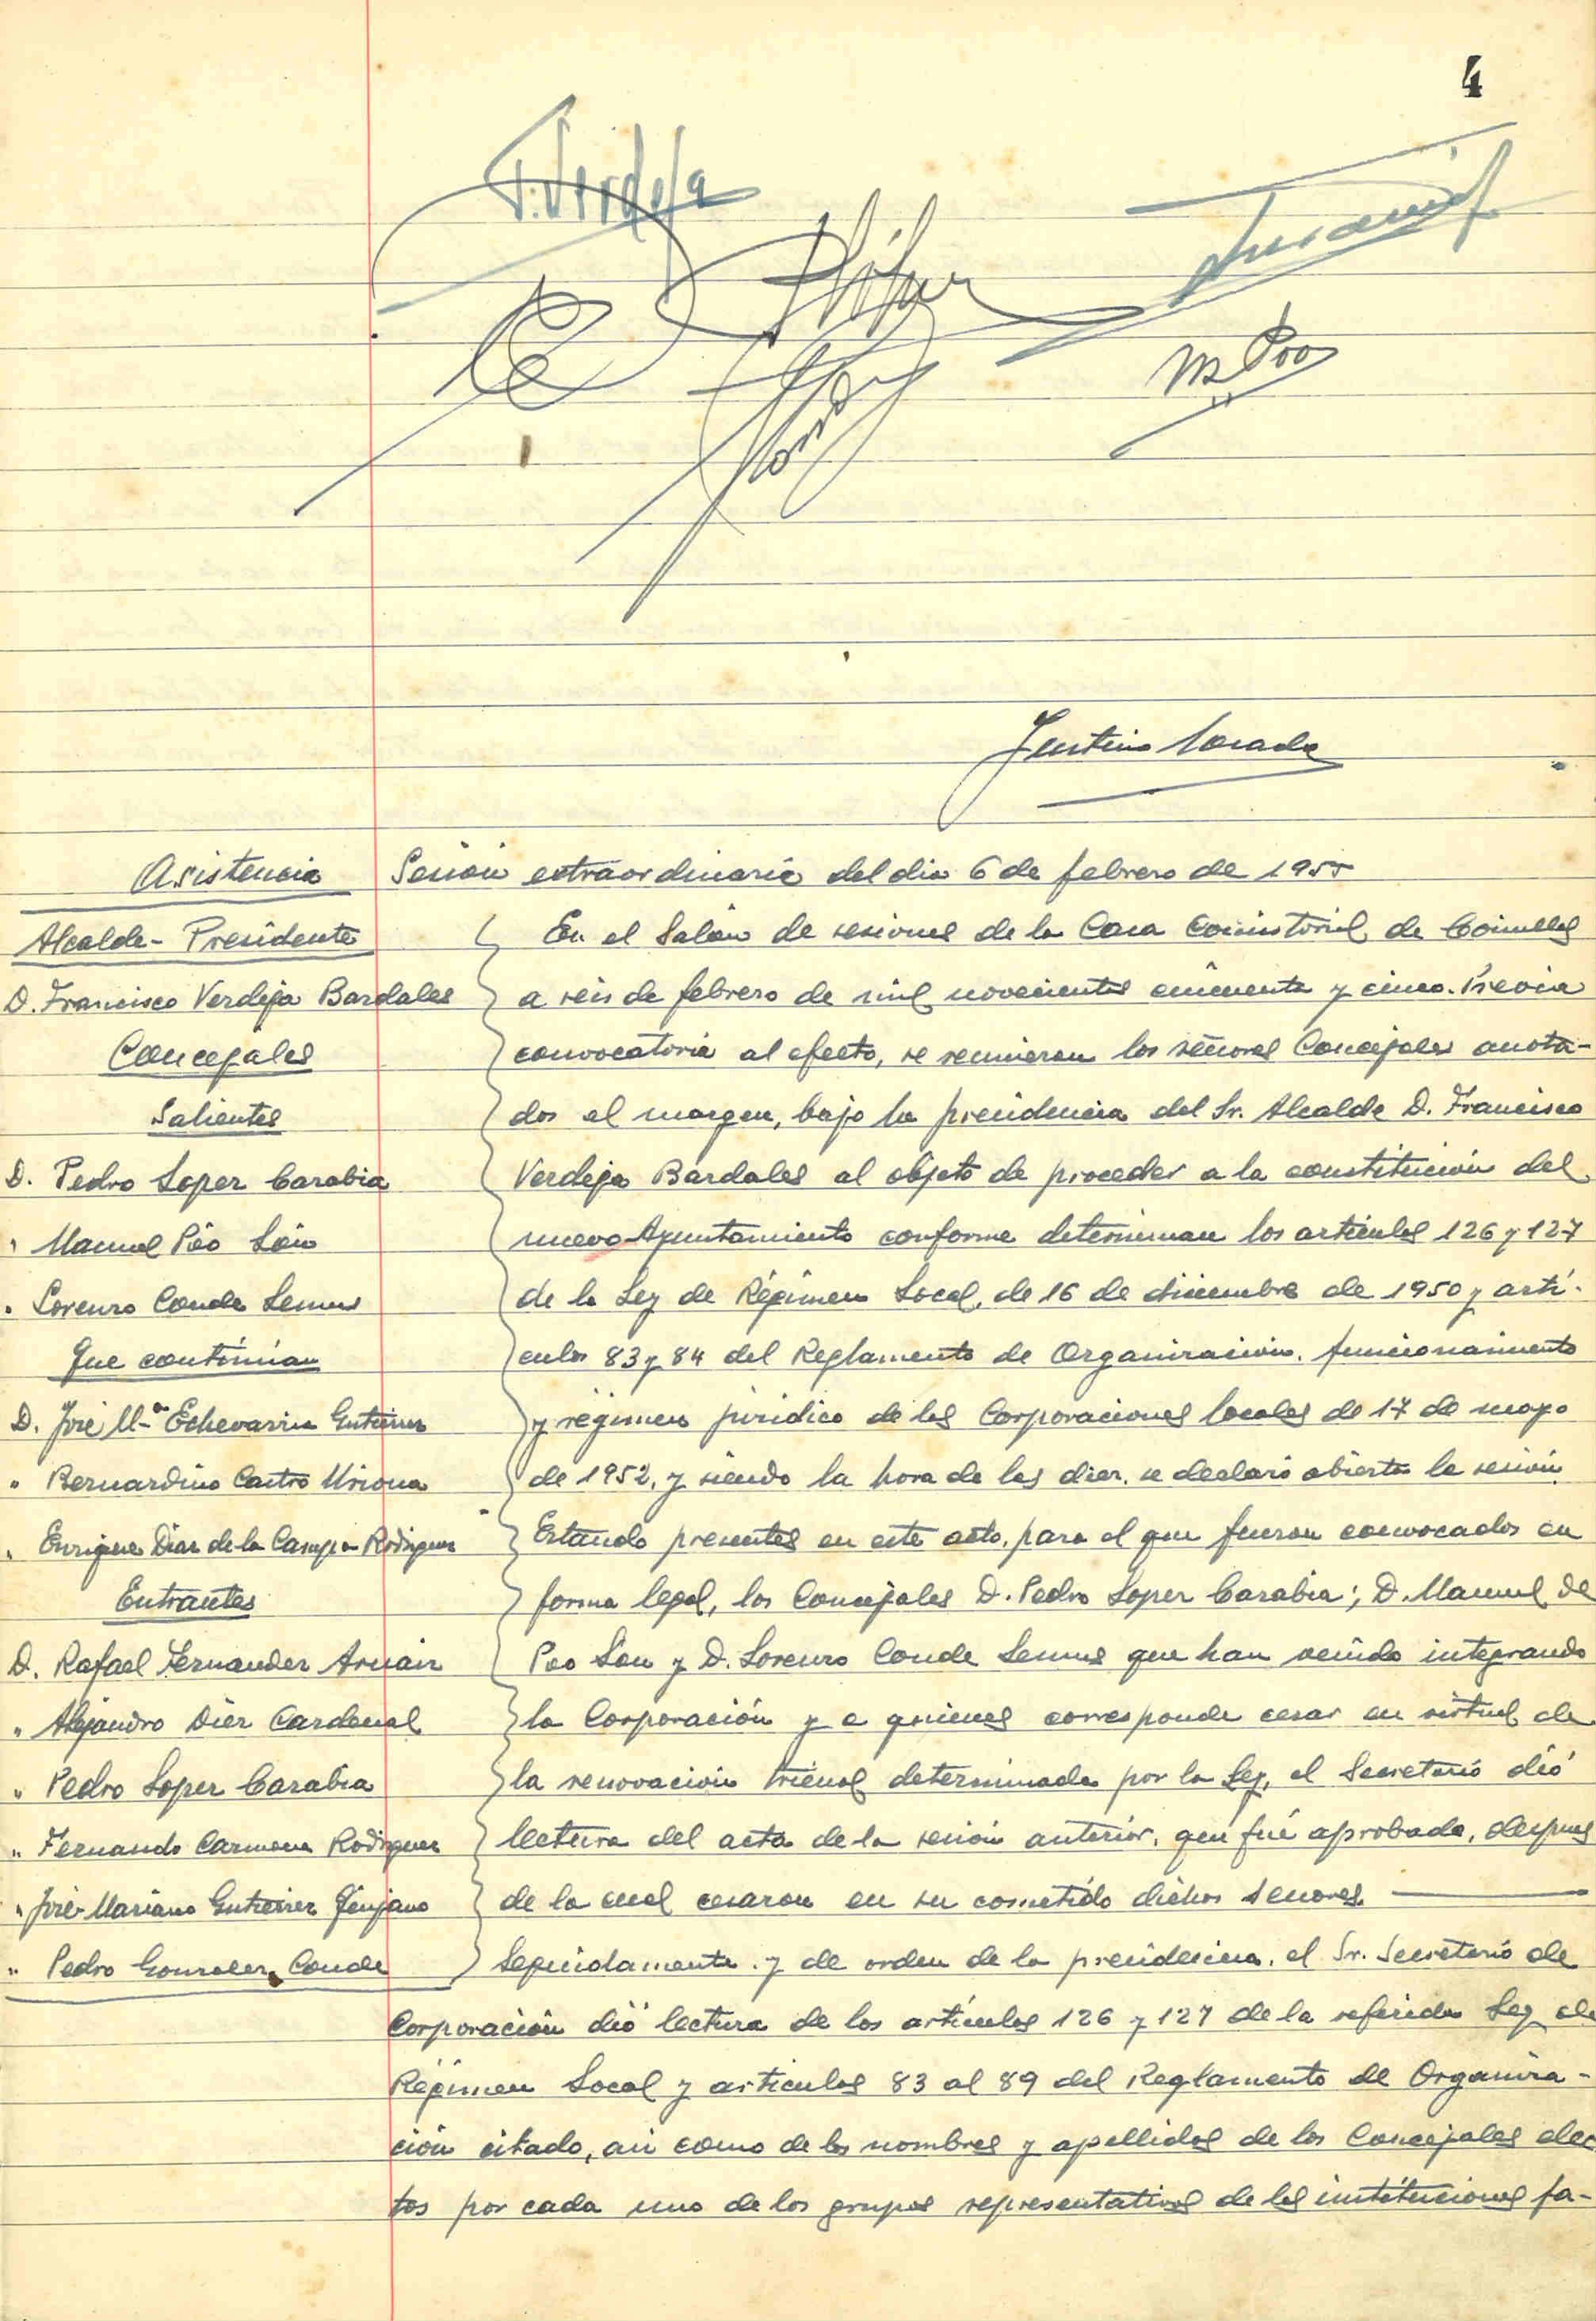 4
F. Verdeja
M. Poo
Justino Losada
Asistencia
Alcalde-Presidente
D. Francisco Verdeja Bardales
Concejales
Salientes
D. Pedro Lopez Carabia
" Manuel Póo Són
" Lorenzo Conde Lemus
Que continúan
D. José Mª Echevarria Gutierrez
" Bernardino Castro
" Enrique Diaz de la Campa Rodriguez
Entrantes
D. Rafael Fernandez Arnaiz
" Alejandro Diez Cardenal
" Pedro Lopez Carabia
" Fernando Carmona Rodriguez
" José Mariano Gutierrez
" Pedro Gonzalez Conde
Sesión extraordinaria del dia 6 de febrero de 1955
En el Salón de sesiones de la Casa Consistorial de Comillas
a seis de febrero de mil novecientos cincuenta y cinco. Previa
convocatoria al efecto, se reunieron los señores Concejales anota-
dos al margen, bajo la presidencia del Sr. Alcalde D. Francisco
Verdeja Bardales al objeto de proceder a la constitución del
nuevo Ayuntamiento conforme determinan los articulos 126 y 127
de la Ley de Régimen Local, de 16 de diciembre de 1950 y artí-
culos 83 y 84 del Reglamento de Organización, funcionamiento
y régimen juridico de las Corporaciones locales de 17 de mayo
de 1952, y siendo la hora de las diez, se declaró abierta la sesión.
Estando presentes en este acto, para el que fueron convocados en
forma legal, los Concejales D. Pedro Lopez Carabia; D. Manuel de
Poo Són y D. Lorenzo Conde Lemus que han venido integrando
la Corporación y a quienes corresponde cesar en virtud de
la renovación trienal determinada por la Ley, el Secretario dió
lectura del acta de la sesión anterior, que fué aprobada, despues
de la cual cesaron en su cometido dichos señores.
Seguidamente, y de orden de la presidencia, el Sr. Secretario de
Corporación dió lectura de los artículos 126 y 127 de la referida Ley de
Régimen Local y articulos 83 al 89 del Reglamento de Organiza-
ción citado, asi como de los nombres y apellidos de los Concejales elec
tos por cada uno de los grupos representativos de las instituciones fa-